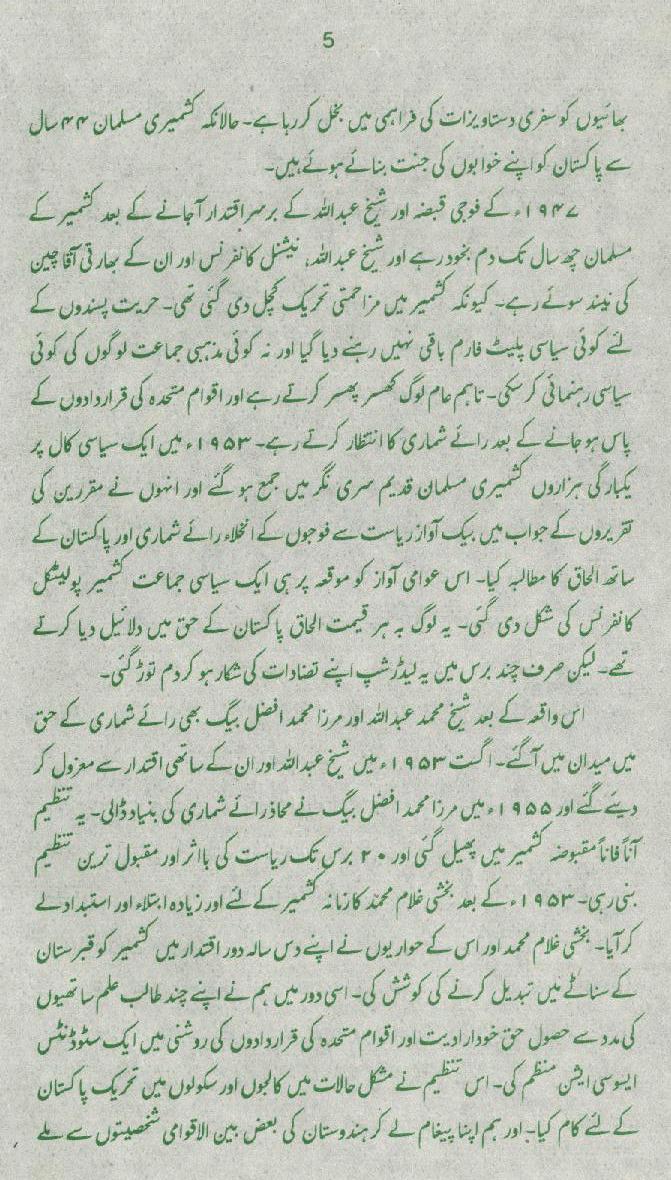 5
بھائیوں کو سفری دستاویزات کی فراہمی میں بخل کر رہا ہے۔ حالانکہ کشمیری مسلمان ۴۴ سال
سے پاکستان کو اپنے خوابوں کی جنت بنائے ہوئے ہیں۔
۱۹۴۷ء کے فوجی قبضہ اور شیخ عبداللہ کے برسراقتدار آجانے کے بعد کشمیر کے
مسلمان چھ سال تک دم بخود رہے اور شیخ عبداللہ، نیشنل کانفرنس اور ان کے بھارتی آقا چین
کی نیند سوئے رہے۔ کیونکہ کشمیر میں مزاحمتی تحریک کچل دی گئی تھی۔ حریت پسندوں کے
لئے کوئی سیاسی پلیٹ فارم باقی نہیں رہنے دیا گیا اور نہ کوئی مذہبی جماعت لوگوں کی کوئی
سیاسی رہنمائی کر سکی۔ تاہم عام لوگ کھسر پھسر کرتے رہے اور اقوام متحدہ کی قراردادوں کے
پاس ہو جانے کے بعد رائے شماری کا انتظار کرتے رہے۔ ۱۹۵۳ء میں ایک سیاسی کال پر
یکبارگی ہزاروں کشمیری مسلمان قدیم سری نگر میں جمع ہو گئے اور انہوں نے مقررین کی
تقریروں کے جواب میں بیک آواز ریاست سے فوجوں کے انخلاء رائے شماری اور پاکستان کے
ساتھ الحاق کا مطالبہ کیا۔ اس عوامی آواز کو موقعہ پر ہی ایک سیاسی جماعت کشمیر پولیٹکل
کانفرنس کی شکل دی گئی۔ یہ لوگ بہ ہر قیمت الحاق پاکستان کے حق میں دلائیل دیا کرتے
تھے۔ لیکن صرف چند برس میں یہ لیڈر شپ اپنے تضادات کی شکار ہو کر دم توڑ گئی۔
اس واقعہ کے بعد شیخ محمد عبداللہ اور مرزا محمد افضل بیگ بھی رائے شماری کے حق
میں میدان میں آگئے۔ اگست ۱۹۵۳ء میں شیخ عبداللہ اور ان کے ساتھی اقتدار سے معزول کر
دیئے گئے اور ۱۹۵۵ء میں مرزا محمد افضل بیگ نے محاذ رائے شماری کی بنیاد ڈالی۔ یہ تنظیم
آناً فاناً مقبوضہ کشمیر میں پھیل گئی اور ۲۰ برس تک ریاست کی بااثر اور مقبول ترین تنظیم
بنی رہی۔ ۱۹۵۳ء کے بعد بخشی غلام محمد کا زمانہ کشمیر کے لئے اور زیادہ ابتلاء اور استبداد لے
کر آیا۔ بخشی غلام محمد اور اس کے حواریوں نے اپنے دس سالہ دور اقتدار میں کشمیر کو قبرستان
کے سناٹے میں تبدیل کرنے کی کوشش کی۔ اسی دور میں ہم نے اپنے چند طالب علم ساتھیوں
کی مدد سے حصول حق خودارادیت اور اقوام متحدہ کی قراردادوں کی روشنی میں ایک سٹوڈنٹس
ایسوسی ایشن منظم کی۔ اس تنظیم نے مشکل حالات میں کالجوں اور سکولوں میں تحریک پاکستان
کے لئے کام کیا۔ اور ہم اپنا پیغام لے کر ہندوستان کی بعض بین الاقوامی شخصیتوں سے ملے